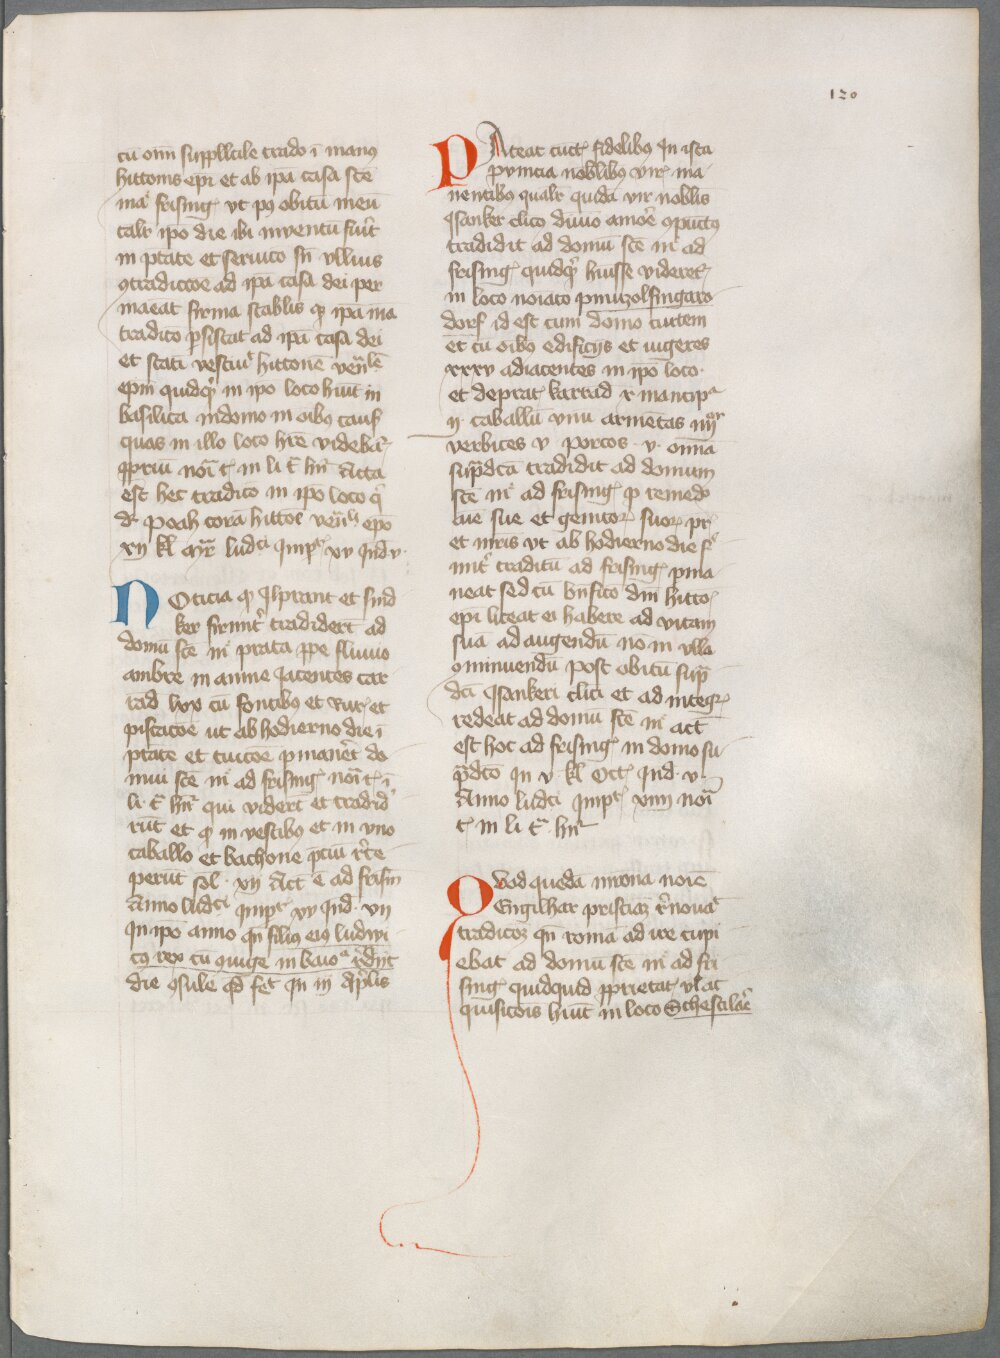 120
cū om̄ suppllctile trado ī manꝯ
hittonis epī et ab ip̄a casa sc̄e
maͥ frising᷒ vt pꝯ obitū meū
talr̄ ip̄o die ibi inventū fuīt
in p̄tate et seruicō sn̄ vllius
ꝯtradiccōe ad ip̄ā casā dei per
maneat firma stablis ꝙ ip̄a mā
traditō ꝑsistat ad ip̄ā casā dei
et stati vestiuͭ hittonē ven̄lē
epm̄ quidqͥd in ip̄o loco hūit in
basilica indomo in oībꝯ causis
quas in illo loco hr̄e videbaͬ
ꝓpriū noīa t᷒ in li c̄ hn̄ Acta
est hec traditō in ip̄o loco qͥ
dr̄ poah corā hittōe ven̄li ep̄o
xij kl̄ apr̄ ludcͥ Imp̄ xv Ind v
Noticia ꝙ Ihprant et sind
ker firmit̄ tradidert̄ ad
domū sc̄e maͥ prata ꝓpe fluuio
ambre in amne Iacentes car
rad lxx cū fontibꝯ et riuꝭ et
piscacōe ut ab hodierno die ī
p̄tate et tuicōe ꝑmanēt do
mui sc̄e maͥ ad frising᷒ noīa t᷒ ī
li c̄ hn̄ qui vidert̄ et tradid̓
rūt et ꝙ in vestibꝯ et in vno
caballo et bachone p̄ciū r̄ce
perunt sol᷒ xij Act̄ ē ad frisin
Anno ludcͥ Imp̄ xv Ind vij
In ip̄o anno qn̄ filiꝯ eiꝯ ludwi
cꝯ rex cū ꝯiuge in baioͣ r̄dijt
die ꝯsule qd̄ fec̄ In iij Ap̄lis
PAteat cūct᷒ fidelibꝯ In ista
ꝓvincia noblibꝯ virꝭ ma
nentibꝯ qualr̄ quidā vir noblis
Isanker clico diuīo amōe ꝯpūctꝯ
tradidit ad domū sc̄e maͥ ad
frising᷒ quidqͥd huisse videret᷒
in loco noīato pmuzolfingaro
dorf id est cum domo curtem
et cū oībꝯ edificijs et iugeres
xxxv adiacentes in ip̄o loco
et deprat᷒ karrad x mancipͣ
ij caballū vnū armētas iiijͬ
verbices v porcos v omnia
sup̄dcā tradidit ad domum
sc̄e maͥ ad frising᷒ ꝓ remedō
aīe sue et genitorꝭ suorꝭ pr̄
et mr̄is vt ab hodierno die fͥ
mit̄ traditū ad frising᷒ ꝑma
neat sed cū bn̄ficō dn̄i hitto
epī liceat ei habere ad vitam
suā ad augendū nō in vlla
ꝯminuendū post obitū sup̄
dcī Isankeri clici et ad integrꝭ
redeat ad domū sc̄e maͥ act̄
est hoc ad frising᷒ in domo su
p̄dcō In v kl̄ Oct᷒ Ind v
Anno ludcͥ Imp̄ xiiij noīa
t᷒ in li c̄ hn̄
Quod quedā matrona noīe
Engilhar pristiaꝫ r̄nouaͭ
tradicōꝫ qn̄ romā ad ire cupi
ebat ad domū sc̄e maͥ ad fri
sing᷒ quidquid ꝓprietat᷒ vl̄ at
quisicōis hūit in loco Scheftilār̄